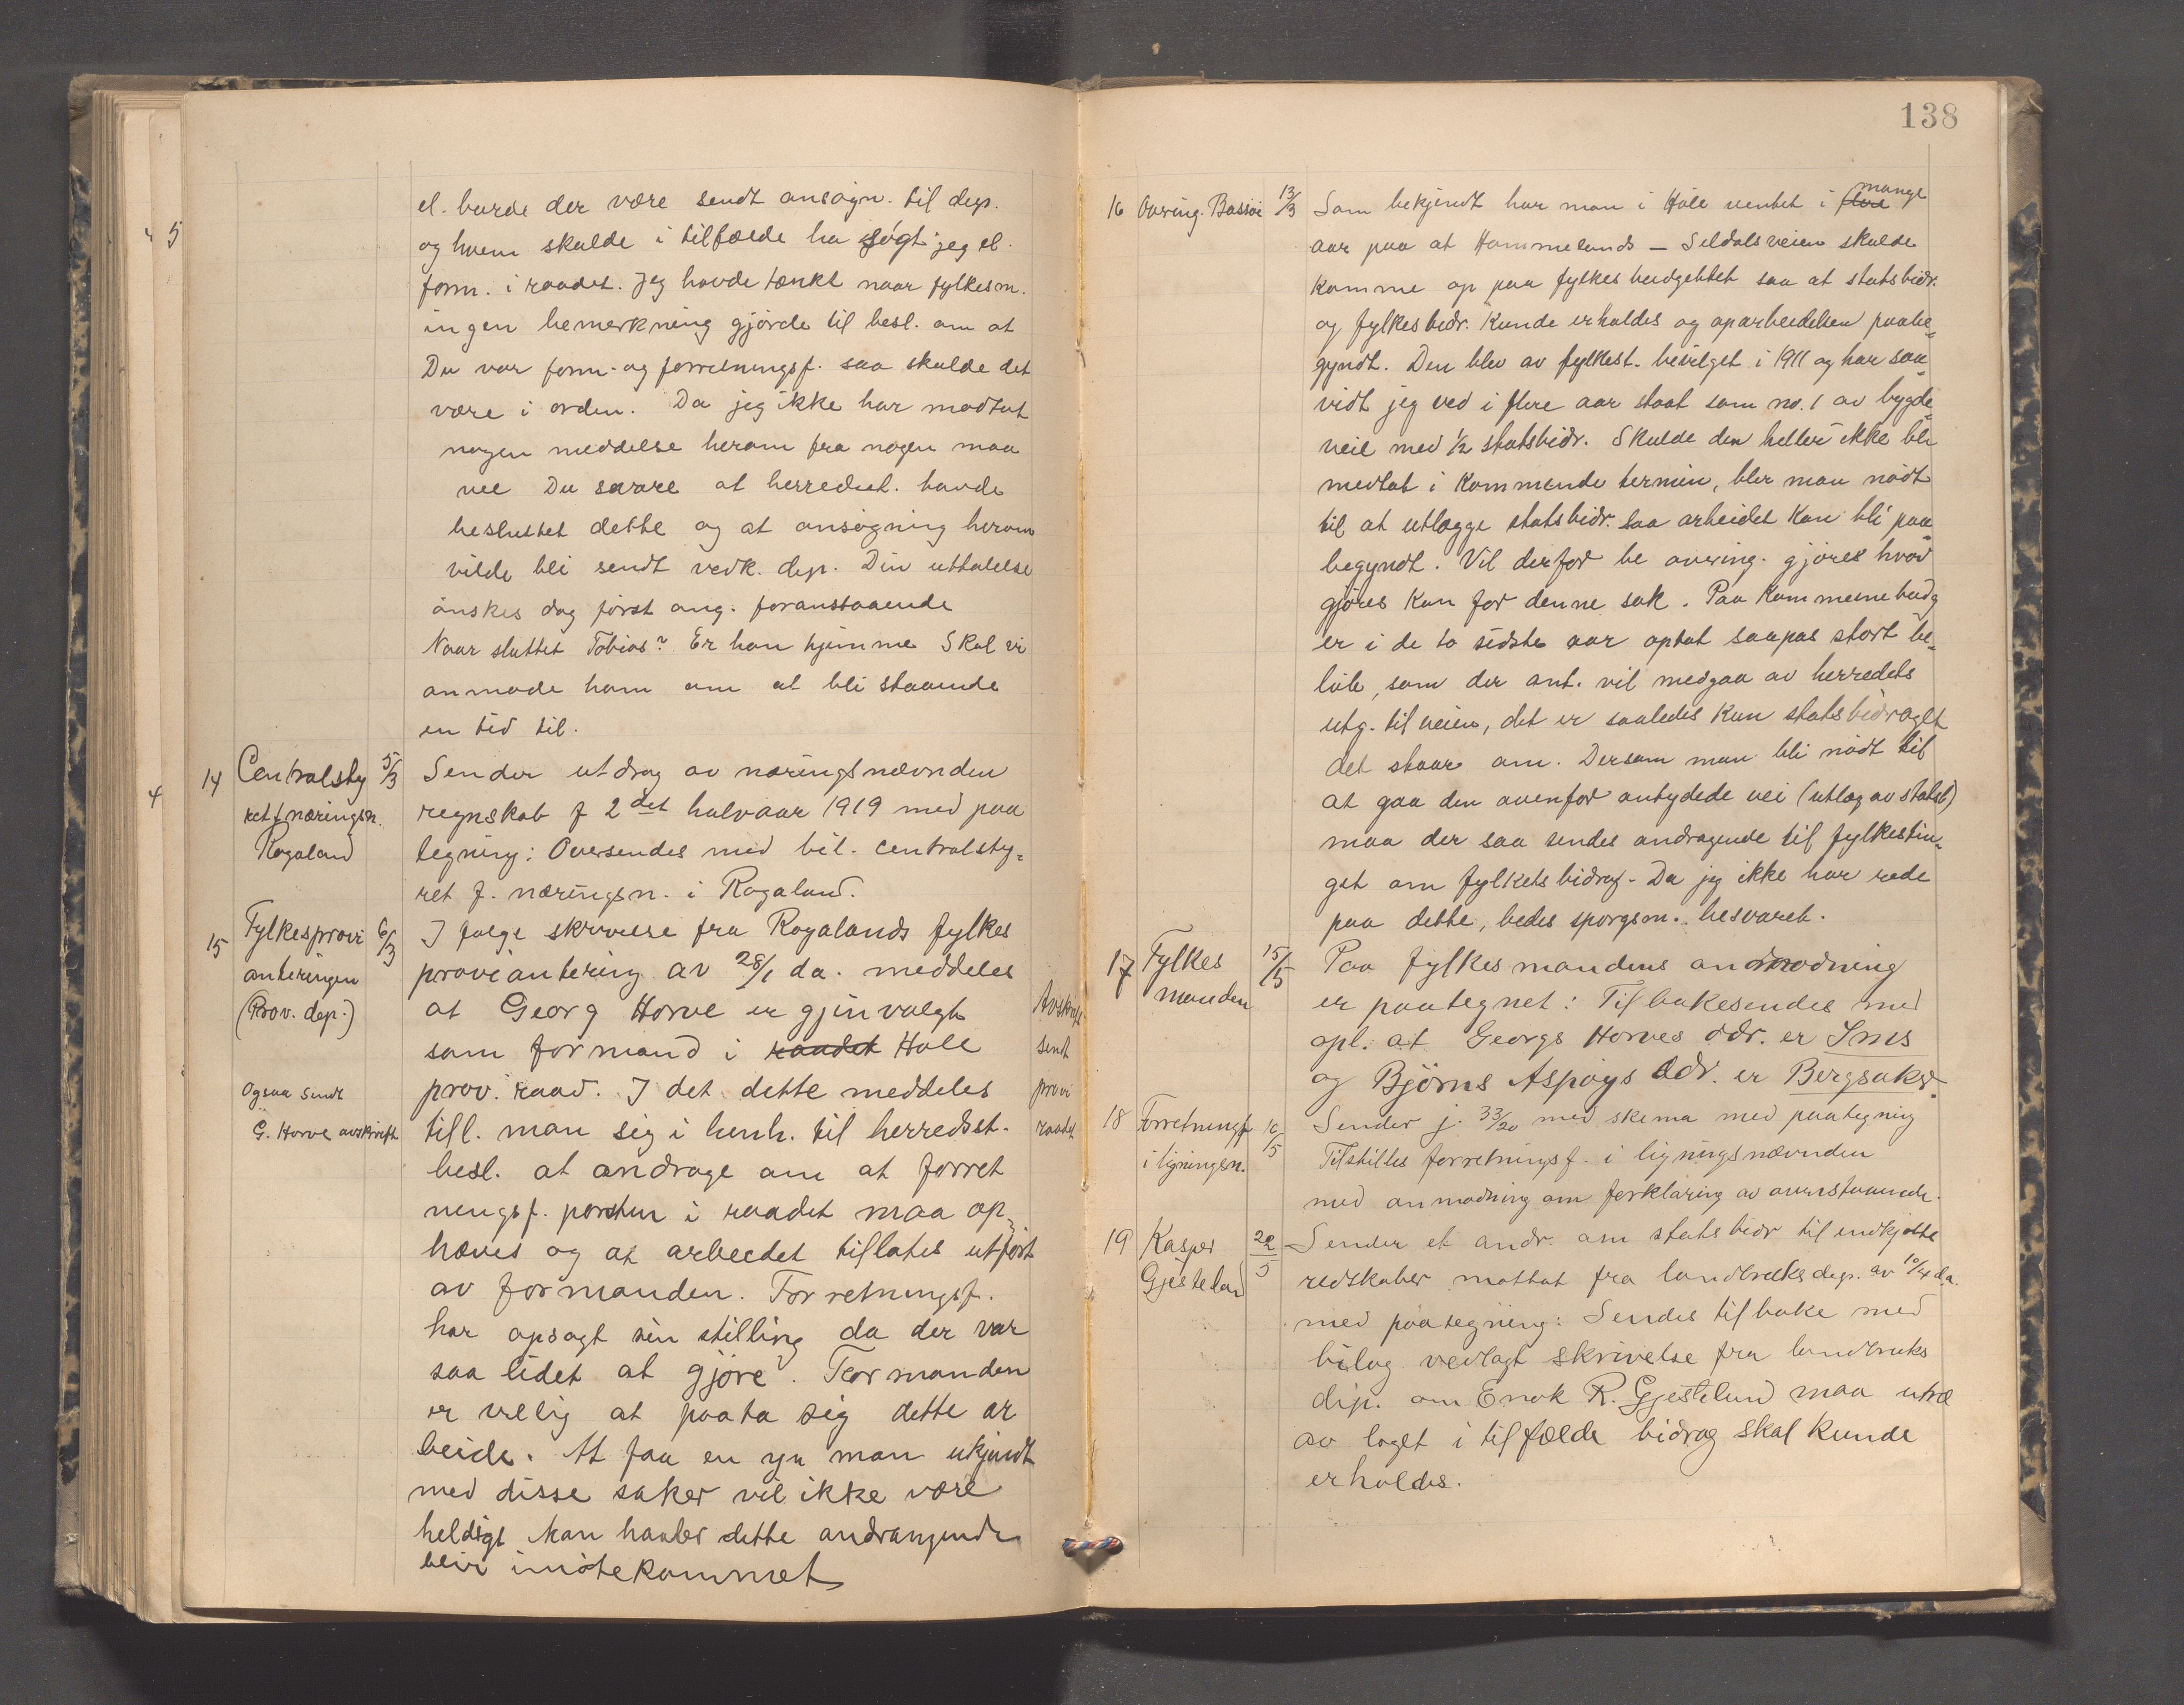 el. burde der være sendt ansøgn. til dep.
og hvem skulde i tilfælde ha søgt jeg el.
form. i raadet. Jeg havde tænkt naar fylkesm.
ingen bemerkning gjorde til besl. om at
Du var form- og forretningsf. saa skulde det
være i orden. Da jeg ikke har modtat
nogen meddelse herom fra nogen maa
vel Du svare at herredsst. havde
besluttet dette og at ansøgning herom
vilde bli sendt vedk. dep. Din uttalelse
ønskes dog først ang. foranstaaende
Naar sluttet Tobias? Er han hjemme Skal vi
anmode ham om at bli staaende
en tid til.
14 Centralsty 5/3 Sender utdrag av næringsnævnden
ret f næringsn. regnskab f 2det halvaar 1919 med paa
Rogaland tegning: Oversendes med bil. centralsty=
ret f. næringsn. i Rogaland.
15 Fylkesprovi 6/3 I følge skrivelse fra Rogalands fylkes
anteringen proviantering av 28/1 da. meddeles
(Prov. dep.) at Georg Horve er gjenvalgt Avskrift
som formand i raadet Hole sendt
Ogsaa sendt prov. raad. I det dette meddeles provi
G. Horve avskrift till. man sig i henh. til herredsst. raadet
besl. at andrage om at forret
ningsf. posten i raadet maa op=
hæves og at arbeidet tillates utført
av formanden. Forretningsf.
har opsagt sin stilling da der var
saa lidet at gjøre. Formanden
er villig at paata sig dette ar
beide. At faa en ny man ukjendt
med disse saker vil ikke være
heldigt Man haaber dette andragende
blir imøtekommet
5
4
138
16 Overing. Bassøe 13/3 Som bekjendt har man i Høle ventet i flere mange
aar paa at Hommelands - Seldalsveien skulde
komme op paa fylkesbudgettet saa at statsbidr.
og fylkesbidr. kunde erholdes og oparbeidelsen paabe=
gyndt. Den blev av fylkest. bevilget i 1911 og har saa=
vidt jeg ved i flere aar staat som no. 1 av bygde=
veie med 1/2 statsbidr. Skulde den heller ikke bli
medtat i kommende termin, blir man nødt
til at utlægge statsbidr. saa arbeidet kan bli paa=
begyndt. Vil derfor be overing. gjøres hvad
gjøres kan for denne sak. Paa kommunebudg
er i de to sidste aar optat saapas stort be=
løb, som der ant. vil medgaa av herredets
utg. til veien, det er saaledes kun statsbidraget
det staar om. Dersom man bli nødt til
at gaa den ovenfor antydede vei (utlæg av statsb)
maa der saa sendes andragende til fylkestin=
get om fylkets bidrag. Da jeg ikke har rede
paa dette, bedes spørgsm. besvaret.
17 Fylkes 15/5 Paa fylkesmandens anmodning
manden er paategnet: Tilbakesendes med
opl. at Georgs Horves adr. er Ims
og Bjørns Aspøys adr. er Bergsaker.
18 Forretningsf 16/5 Sender j. 33/20 med skema med paategning
i ligningsn. Tilstilles forretningsf. i ligningsnævnden
med anmodning om forklaring av ovenstaaende.
19 Kasper 22/5 Sender et andr. om statsbidr til indkjøbte
Gjesteland redskaber mottat fra landbruksdep. av 10/4 da.
med paategning: Sendes tilbake med
bilag vedlagt skrivelse fra landbruks
dep. om Enok R. Gjesteland maa utræ
av laget i tilfælde bidrag skal kunde
erholdes.